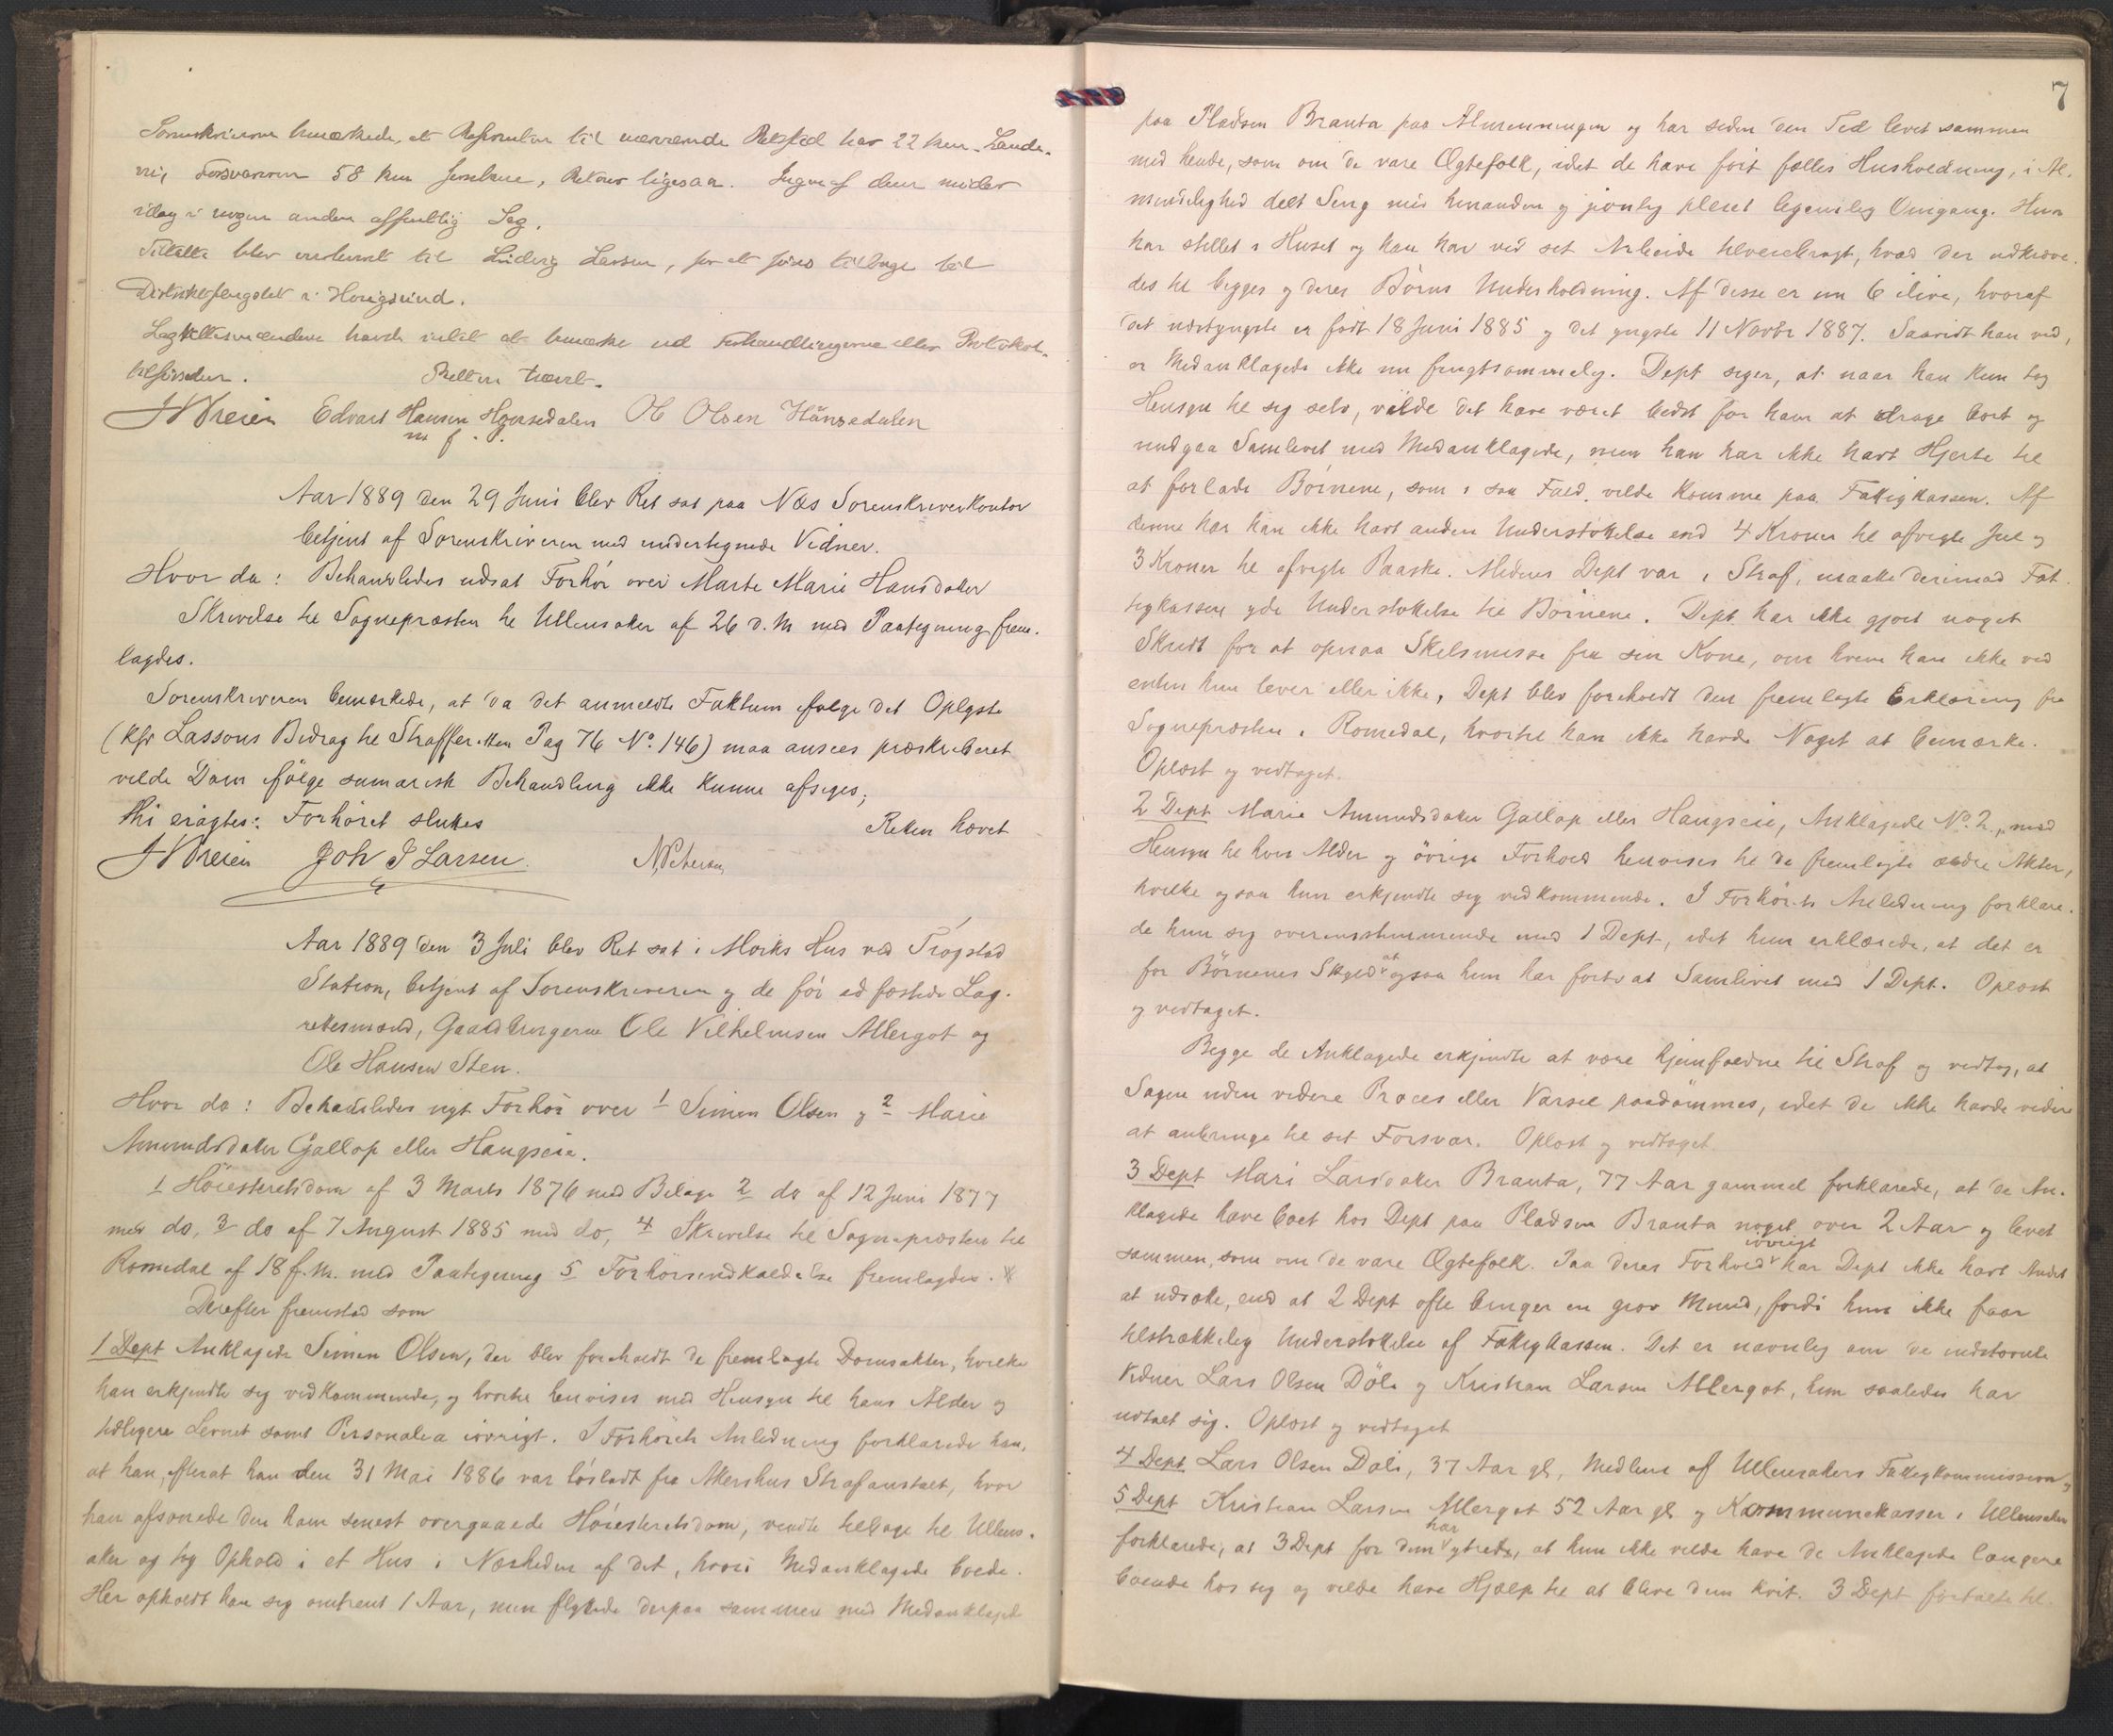 Sorenskriveren bemærkede, at Aktor til nærværende Retsted har 22 km. Lande-
vei, Forsvareren 58 km Jernbane, Retour ligesaa. Ingen af dem møder
idag i nogen anden offentlig Sag.
Tiltalte blev overleveret til Ludvig Larsen, for at føres tilbage til
Distriktsfængslet i Kongsvind.
Lagrettesmændene havde intet at bemærke ved Forhandlingerne eller Protokol-
tilførselen. Retten hævet.
Edvart Hansen Hønsedalen Ole Olsen Hönsedalen
m f. P.
Aar 1889 den 29 Juni blev Ret sat paa Næs Sorenskriverkontor
betjent af Sorenskriveren med undertegnede Vidner.
Hvor da: Behandledes udsat Forhör over Marte Marie Hansdatter
Skrivelse til Sognepræsten til Ullensaker af 26 d. M. med Paategning frem-
lagdes.
Sorenskriveren bemærkede, at da det anmeldte Faktum ifølge det Oplyste
(kfr Lassons Bidrag til Strafferetten Pag 76 No. 146) maa ansees præskriberet
vilde Dom ifölge summarisk Behandling ikke kunne afsiges;
thi eragtes: Forhöret sluttes
Retten hævet
Joh J Larsen N Petersen
Aar 1889 den 3 Juli blev Ret sat i Morks Hus ved Trögstad
Station, betjent af Sorenskriveren og de för edfæstede Lag-
rettesmænd, Gaardbrugerne Ole Vilhelmsen Allergot og
Ole Hansen Sten.
Hvor da: Behandledes nyt Forhör over 1 Simen Olsen og 2 Marie
Amundsdatter Gallop eller Haugseie.
1 Höiesteretsdom af 3 Marts 1876 med Bilage 2 do af 12 Juni 1877
med do, 3 do af 7 August 1885 med do, 4 Skrivelse til Sognepræsten til
Romedal af 18 f. M. med Paategning 5 Forhörsindkaldelse fremlagdes.
Derefter fremstod som
1 Dept Anklagede Simen Olsen, der blev foreholdt de fremlagte Domsakter, hvilke
han erkjendte sig vedkommende, og hvortil henvises med Hensyn til hans Alder og
tidligere Levnet samt Personalia iövrigt. I Forhörets Anledning forklarede han,
at han, efterat han den 31 Mai 1886 var löslatt fra Akershus Strafanstalt, hvor
han afsonede den ham senest overgaaede Höiesteretsdom, vendte tilbage til Ullens-
aker og tog Ophold i et Hus i Nærheden af det, hvori Medanklagede boede.
Her opholdt han sig omtrent 1 Aar, men flyttede derpaa sammen med Medanklagede
7
paa Pladsen Branta paa Almenningen og har siden den Tid levet sammen
med hende, som om de vare Ægtefolk, idet de have fört fælles Husholdning, i Al-
mindelighed delt Seng med hinanden og jevnlig pleiet legemlig Omgang. Hun
har stellet i Huset og han har ved sit Arbeide tilveiebragt, hvad der udkræve-
des til begges og deres Börns Underholdning. Af disse er nu 6 ilive, hvoraf
det næstyngste er födt 18 Juni 1885 og det yngste 11 Novbr 1887. Saavidt han ved,
er Medanklagede ikke nu frugtsommelig. Dept siger, at naar han kun tog
Hensyn til sig selv, vilde det have været bedst for ham at drage bort og
undgaa Samlivet med Medanklagede, men han har ikke havt Hjerte til
at forlade Börnene, som i saa Fald vilde komme paa Fattigkassen. Af
denne har han ikke havt anden Understöttelse end 4 Kroner til afvigte Jul og
3 Kroner til afvigte Paaske. Medens Dept var i Straf, maatte derimod Fat-
tigkassen yde Understöttelse til Börnene. Dept har ikke gjort noget
Skridt for at opnaa Skilsmisse fra sin Kone, om hvem han ikke ved
enten hun lever eller ikke. Dept blev foreholdt den fremlagte Erklæring fra
Sognepræsten i Romedal, hvortil han ikke havde Noget at bemærke.
Oplæst og vedtaget.
2 Dept Marie Amundsdatter Gallop eller Haugseie, Anklagede No. 2, med
Hensyn til hvis Alder og övrige Forhold henvises til de fremlagte ældre Akter,
hvilke ogsaa hun erkjendte sig vedkommende. I Forhörets Anledning forklare-
de hun sig overensstemmende med 1 Dept, idet hun erklærede, at det er
for Börnenes Skyld at ogsaa hun har fortsat Samlivet med 1 Dept. Oplæst
og vedtaget.
Begge de Anklagede erkjendte at være hjemfaldne til Straf og vedtog, at
Sagen uden videre Proces eller Varsel paadömmes, idet de ikke havde videre
at anbringe til sit Forsvar. Oplæst og vedtaget.
3 Dept Mari Larsdatter Branta, 77 Aar gammel forklarede, at de An-
klagede have boet hos Dept paa Pladsen Branta noget over 2 Aar og levet
sammen, som om de vare Ægtefolk. Paa deres Forhold iövrigt har Dept ikke havt Andet
at udsætte, end at 2 Dept ofte bruger en grov Mund, fordi hun ikke faar
tilstrækkelig Understöttelse af Fattigkassen. Det er navnlig om de indstævnte
Vidner Lars Olsen Döli og Kristian Larsen Allergot, hun saaledes har
udtalt sig. Oplæst og vedtaget
4 Dept Lars Olsen Döli, 37 Aar gl, Medlem af Ullensakers Fattigkommission og
5 Dept Kristian Larsen Allergot 52 Aar gl og Kommunekasserer i Ullensaker
forklarede, at 3 Dept for dem har ytret, at hun ikke vilde have de Anklagede længere
boende hos sig og vilde have Hjælp til at blive dem kvit. 3 Dept fortalte til